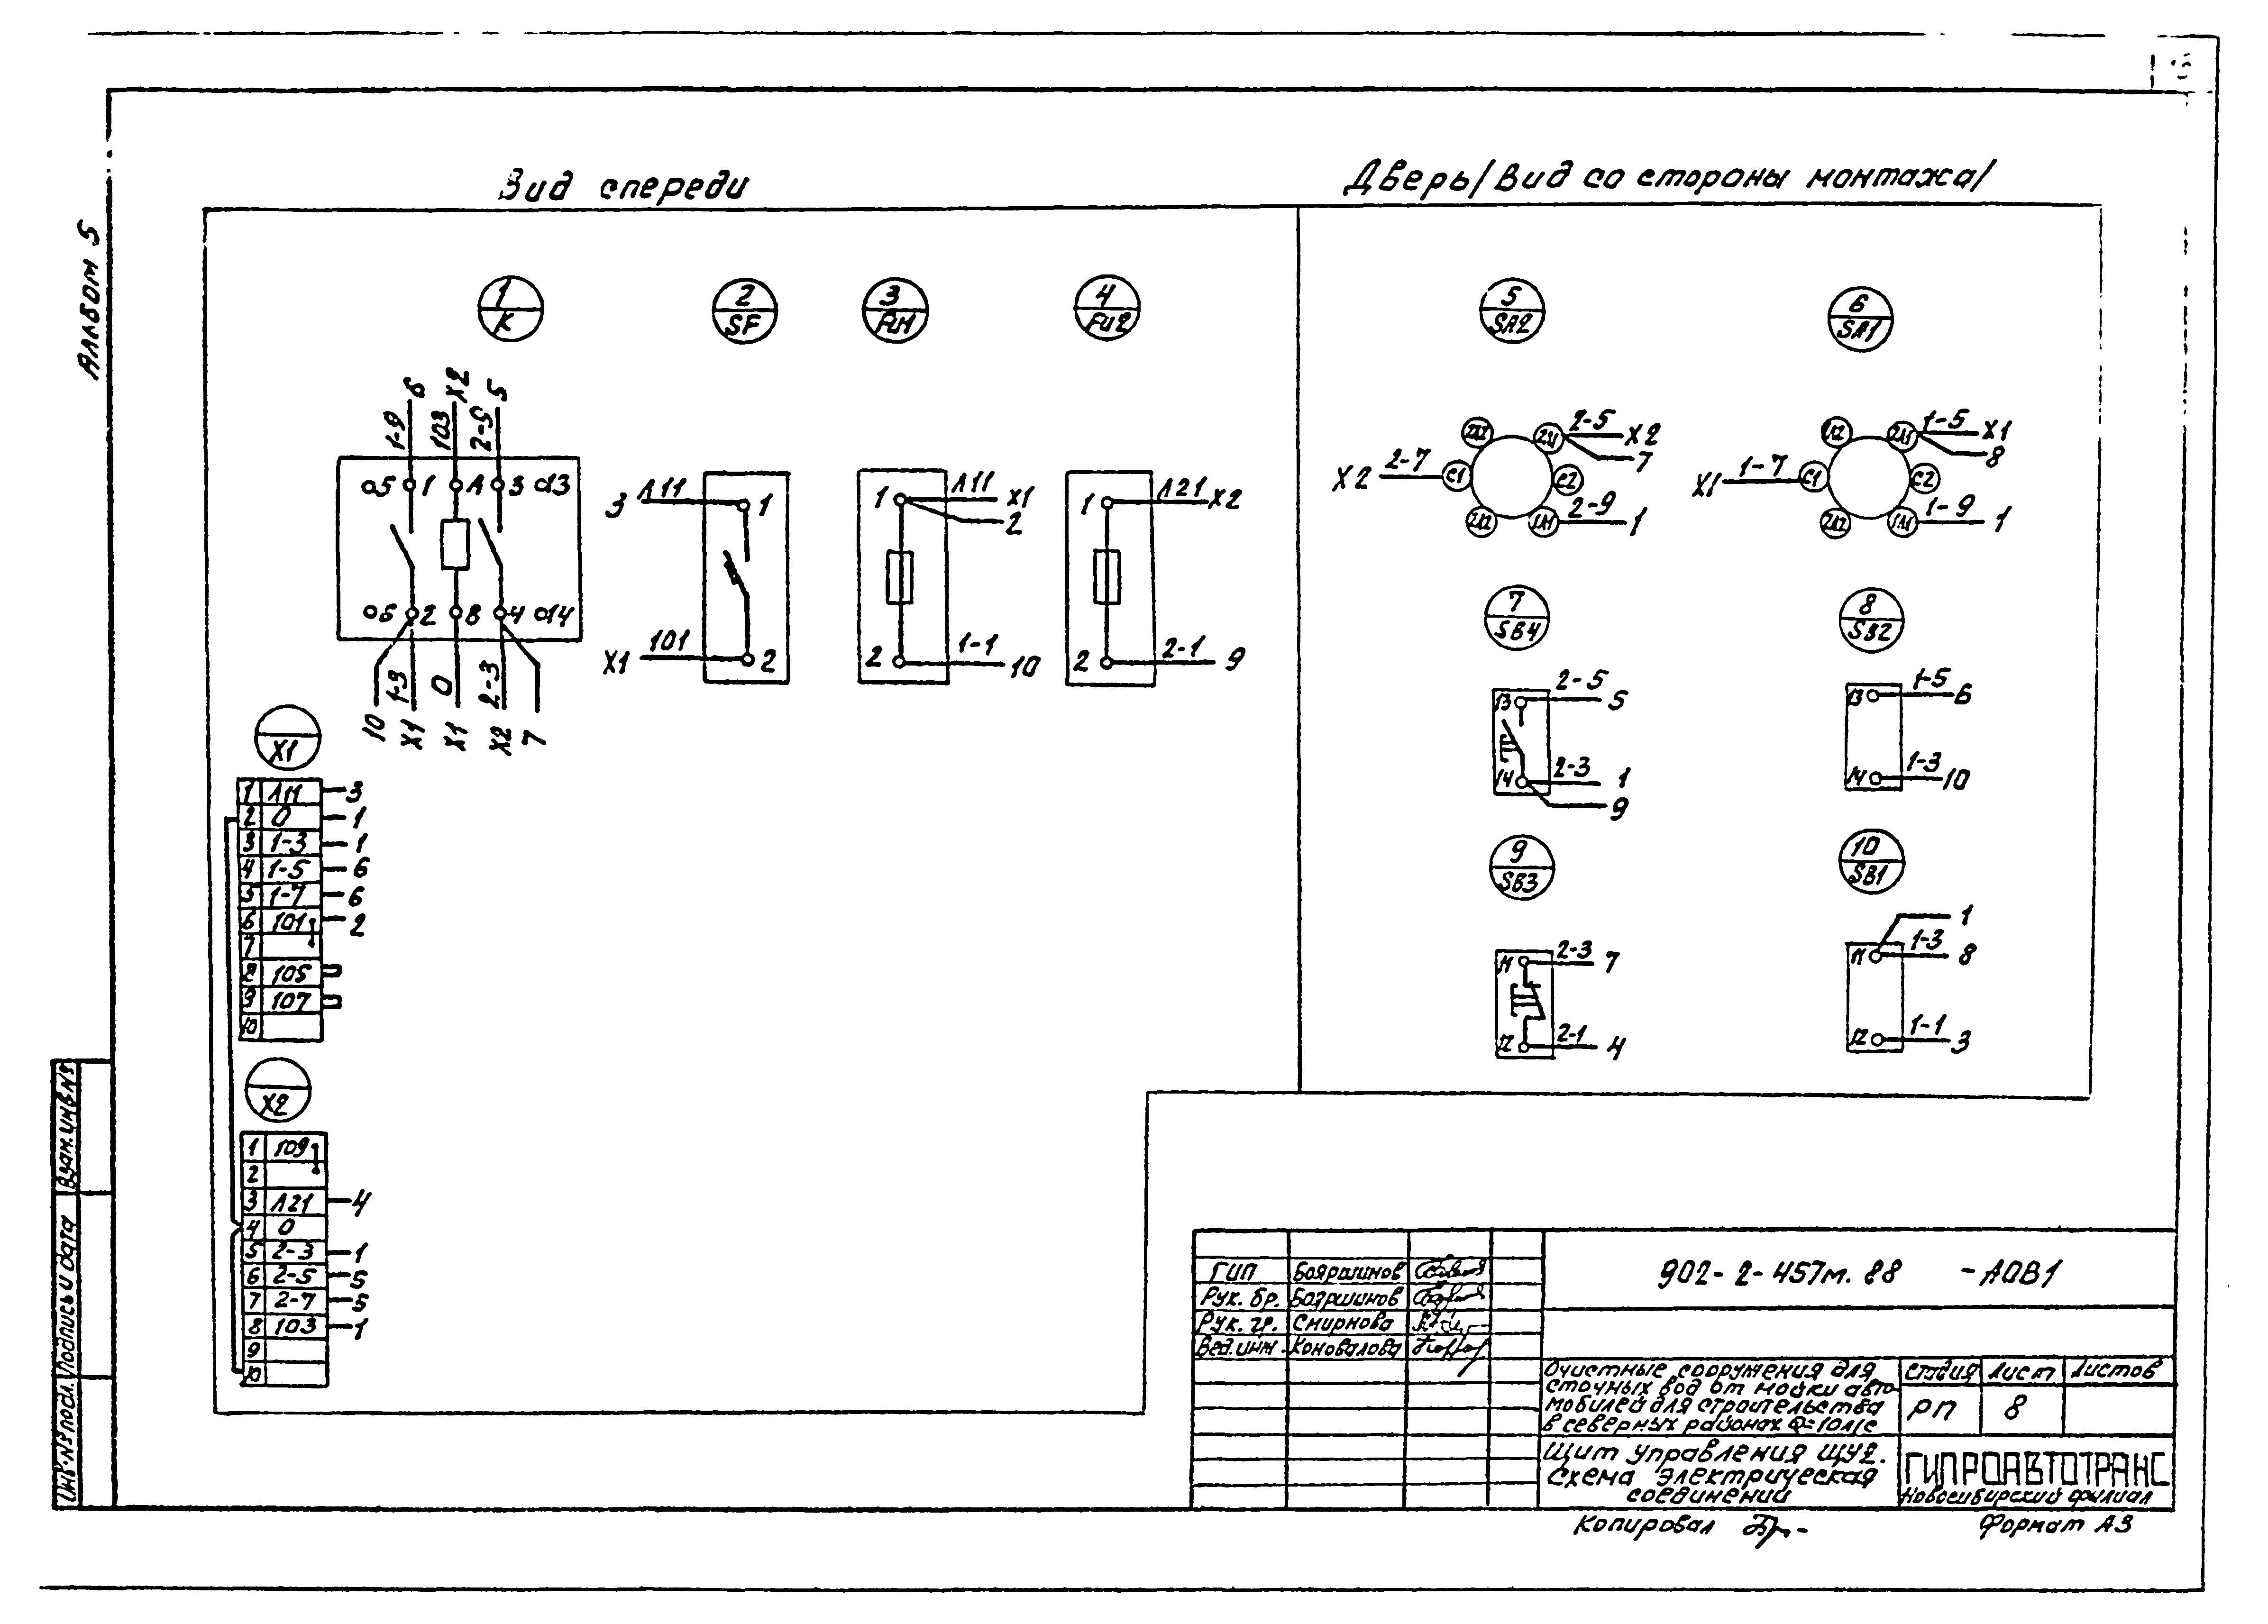 Альбом 5
Вид спереди
Дверь /Вид со стороны монтажа/
1
K
2
SF
3
FU1
4
FU2
5
SA2
6
SA1
6
X2
5
1-9
103
2-5
5
1
A
3
13
6
2
B
4
14
1-3
0
2-3
10
X1
X1
X2
7
3
Л11
1
X1
101
2
1
Л11
X1
2
2
1-1
10
1
Л21
X2
2
2-1
9
2-5
X2
7
X2
2-7
C1
C2
2-9
1
1-5
X1
8
X1
1-7
C1
C2
1-9
1
7
SB4
8
SB2
13
2-5
5
14
2-3
1
9
13
1-5
6
14
1-3
10
9
SB3
10
SB1
11
2-3
7
12
2-1
4
1
11
1-3
8
12
1-1
3
X1
1 Л11 3
2 0 1
3 1-3 1
4 1-5 6
5 1-7 6
6 101 2
7
8 105
9 107
10
X2
1 109
2
3 Л21 4
4 0
5 2-3 1
6 2-5 5
7 2-7 5
8 103 1
9
10
Взам. инв №
Подпись и дата
Инв. № подл.
ГИП Бояршинов
Рук. бр. Бояршинов
Рук. гр. Смирнова
Вед. инж. Коновалова
902-2-457м.88 -АОВ1
Очистные сооружения для
сточных вод от мойки авто
мобилей для строительства
в северных районах Q=10л/с
Стадия Лист Листов
РП 8
Щит управления ЩУ2.
Схема электрическая
соединений
ГИПРОАВТОТРАНС
Новосибирский филиал
Копировал
Формат А3